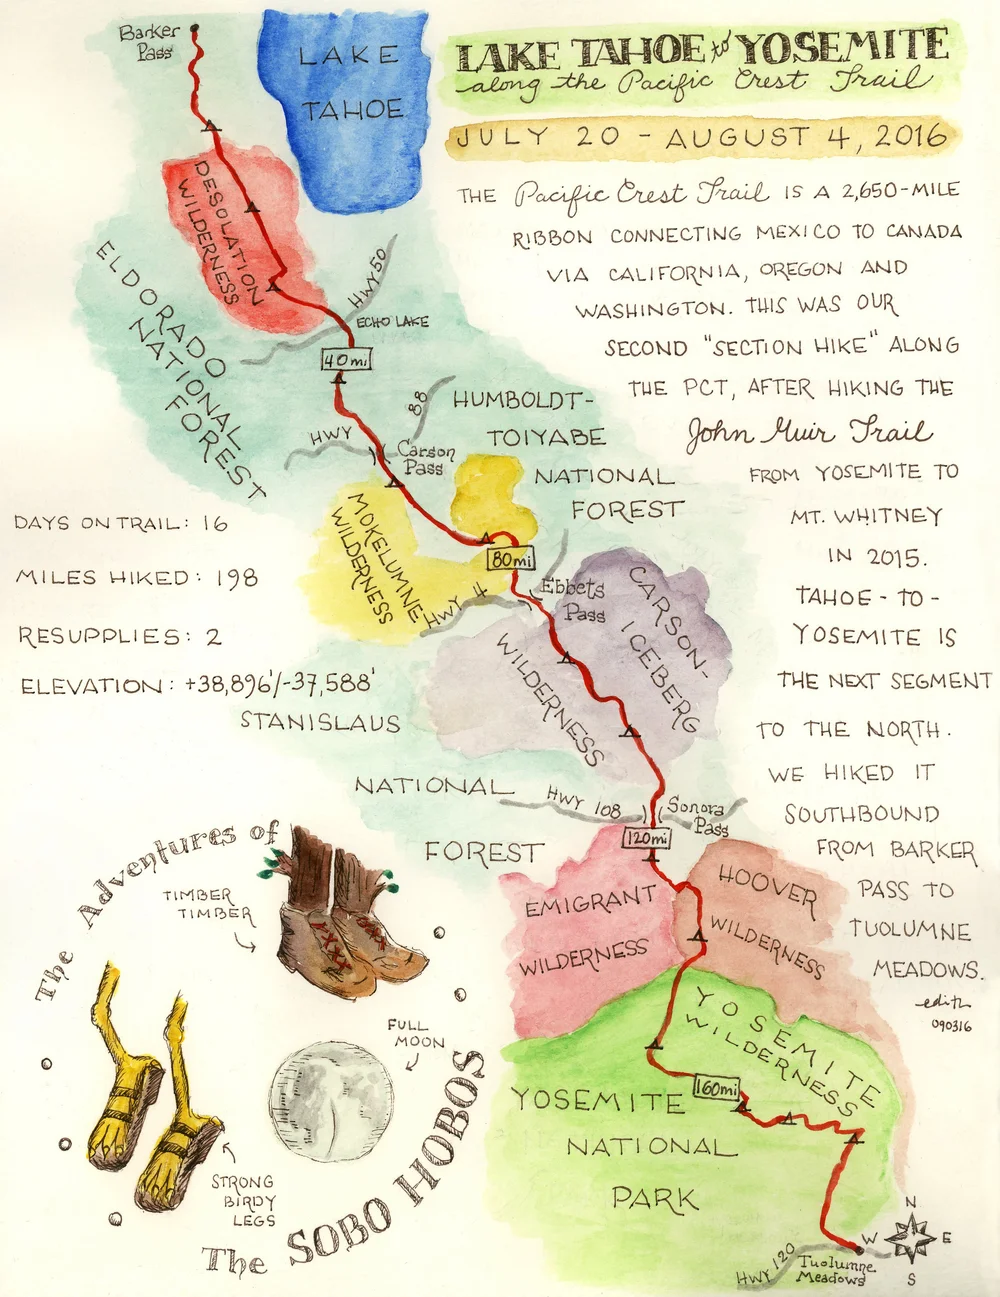 LAKE TAHOE to YOSEMITE
along the Pacific Crest Trail
JULY 20 - AUGUST 4, 2016
THE Pacific Crest Trail IS A 2,650-MILE
RIBBON CONNECTING MEXICO TO CANADA
VIA CALIFORNIA, OREGON AND
WASHINGTON. THIS WAS OUR
SECOND "SECTION HIKE" ALONG
THE PCT, AFTER HIKING THE
John Muir Trail
FROM YOSEMITE TO
MT. WHITNEY
IN 2015.
TAHOE-TO-
YOSEMITE IS
THE NEXT SEGMENT
TO THE NORTH.
WE HIKED IT
SOUTHBOUND
FROM BARKER
PASS TO
TUOLUMNE
MEADOWS.
edith
090316
Barker
Pass
LAKE
TAHOE
DESOLATION
WILDERNESS
ELDORADO
NATIONAL
FOREST
HWY 50
ECHO LAKE
40mi
HWY 88
Carson
Pass
HUMBOLDT-
TOIYABE
NATIONAL
FOREST
MOKELUMNE
WILDERNESS
80mi
HWY 4
Ebbets
Pass
CARSON-
ICEBERG
WILDERNESS
DAYS ON TRAIL: 16
MILES HIKED: 198
RESUPPLIES: 2
ELEVATION: +38,896'/-37,588'
STANISLAUS
NATIONAL
FOREST
HWY 108
Sonora
Pass
120mi
EMIGRANT
WILDERNESS
HOOVER
WILDERNESS
YOSEMITE
WILDERNESS
160mi
YOSEMITE
NATIONAL
PARK
HWY 120
Tuolumne
Meadows
N
W E
S
The Adventures of
TIMBER
TIMBER
FULL
MOON
STRONG
BIRDY
LEGS
The SOBO HOBOS